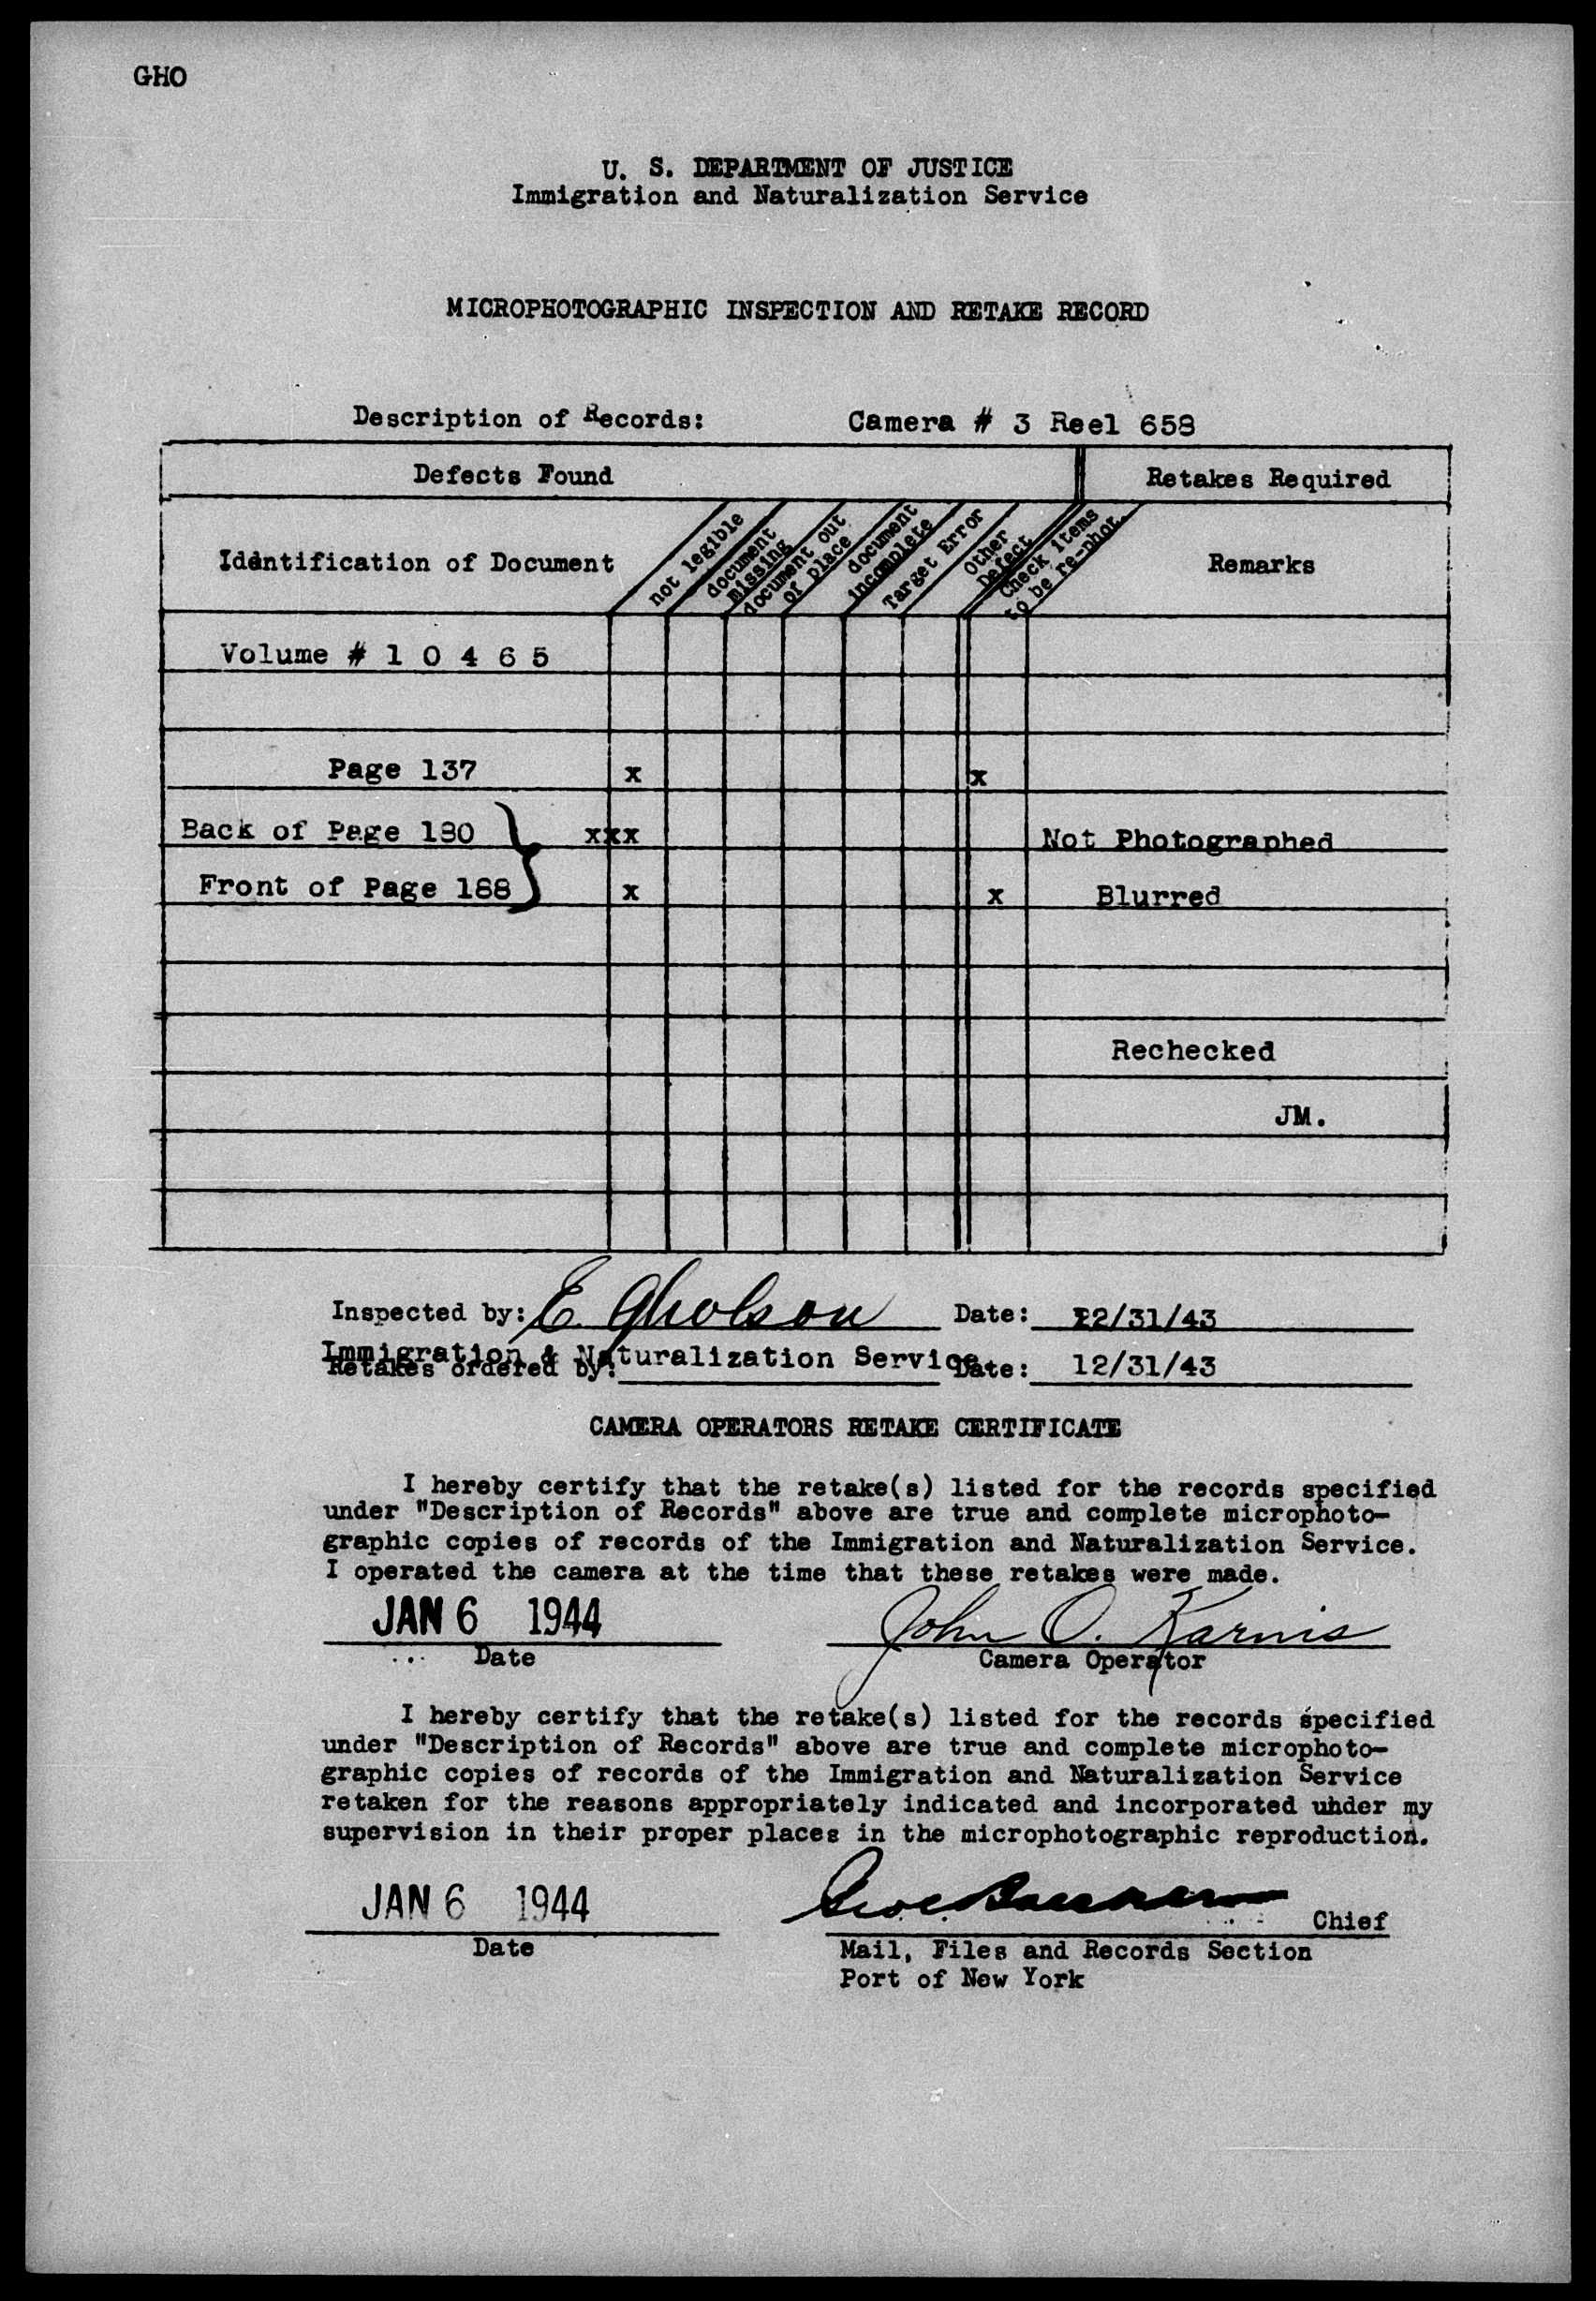 GHO
U. S. DEPARTMENT OF JUSTICE
Immigration and Naturalization Service
MICROPHOTOGRAPHIC INSPECTION AND RETAKE RECORD
Description of Records: Camera # 3 Reel 658
Defects Found Retakes Required
Identification of Document
not legible
document
missing
document out
of place
document
incomplete
Target Error
Other
Defect
Check items
to be re-phot.
Remarks
Volume # 1 0 4 6 5
Page 137 x x
Back of Page 180 xxx Not Photographed
Front of Page 188 x x Blurred
Rechecked
JM.
Inspected by: E. Gholson Date: 12/31/43
Immigration & Naturalization Service
Retakes ordered by: Date: 12/31/43
CAMERA OPERATORS RETAKE CERTIFICATE
I hereby certify that the retake(s) listed for the records specified
under "Description of Records" above are true and complete microphoto-
graphic copies of records of the Immigration and Naturalization Service.
I operated the camera at the time that these retakes were made.
JAN 6 1944 John O. Karnis
Date Camera Operator
I hereby certify that the retake(s) listed for the records specified
under "Description of Records" above are true and complete microphoto-
graphic copies of records of the Immigration and Naturalization Service
retaken for the reasons appropriately indicated and incorporated under my
supervision in their proper places in the microphotographic reproduction.
JAN 6 1944 Chief
Date Mail, Files and Records Section
Port of New York